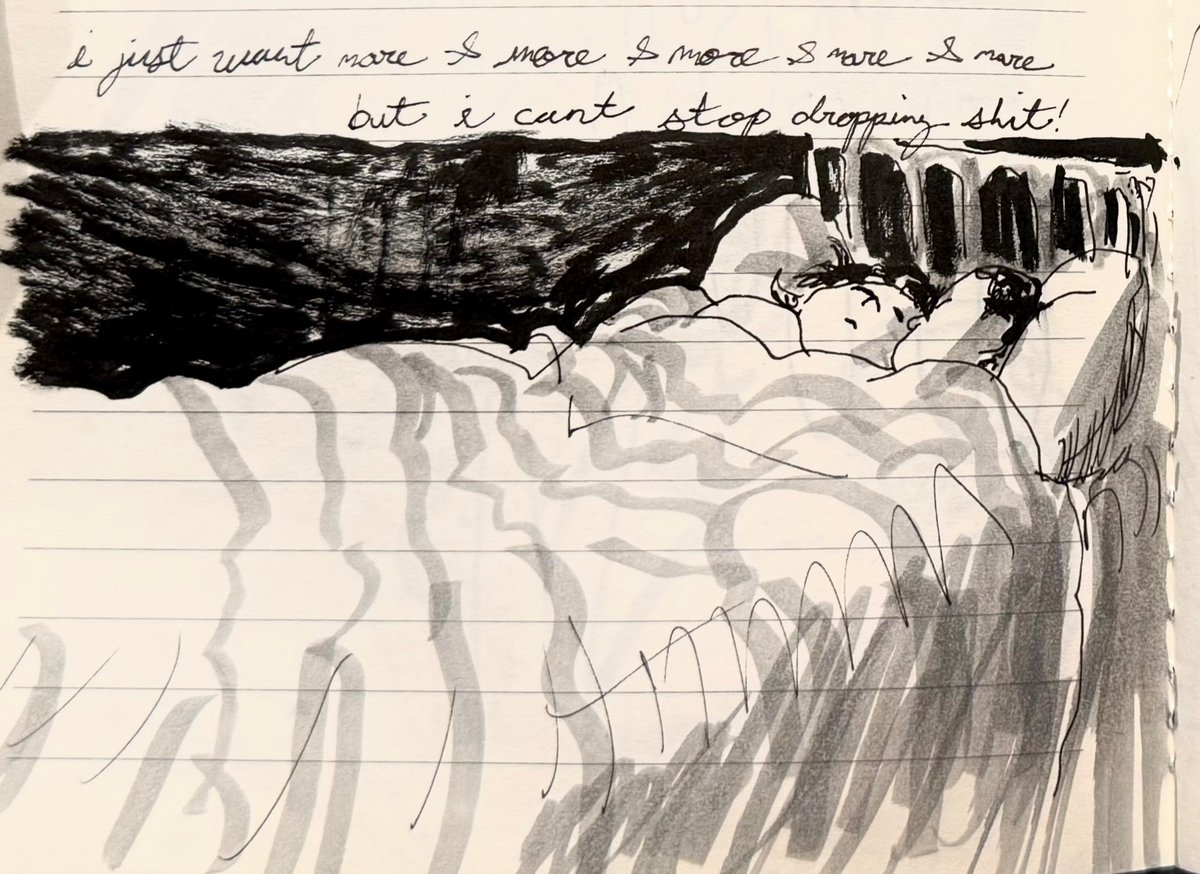 i just want more & more & more & more & more
but i cant stop dropping shit!